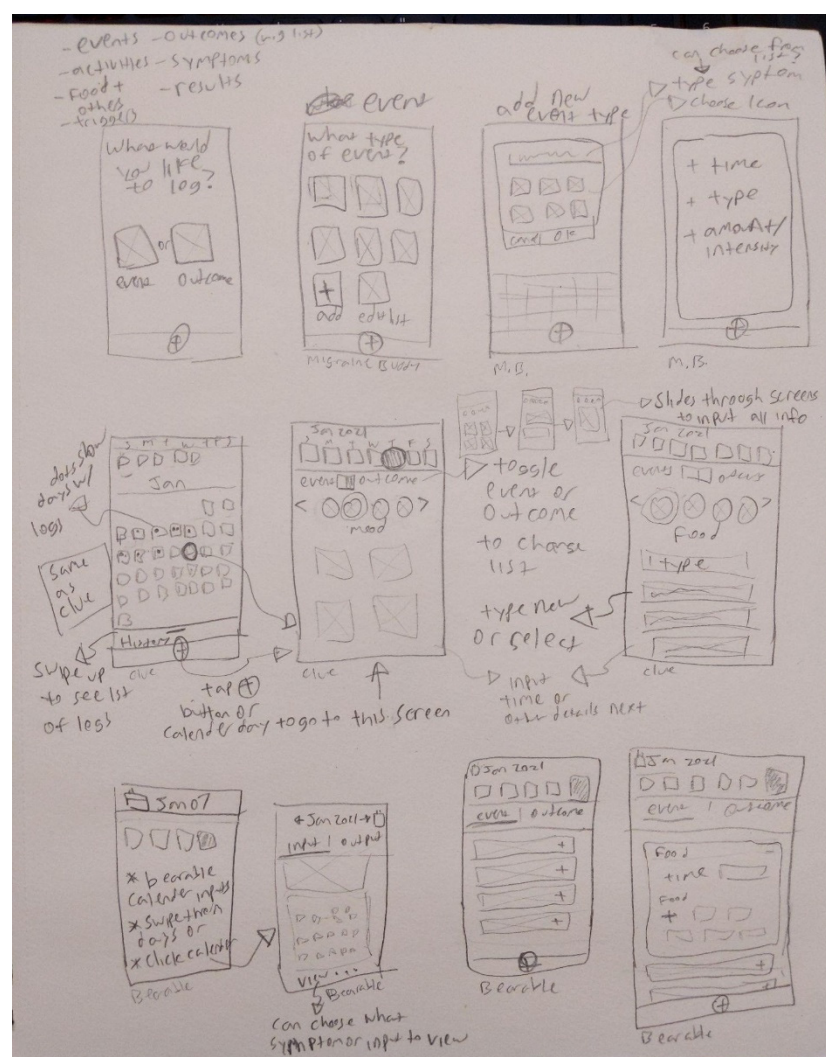 - events - outcomes (mig list)
- activities - symptoms
- Food + others - results
- triggers
What would
you like
to log?
or
event outcome
event
What type
of event?
+
add edit list
Migraine Buddy
add new
event type
cancel OK
M.B.
can choose from
list?
type syptom
choose icon
+ time
+ type
+ amount/
intensity
M.B.
dots show
days w/
logs
Same
as
clue
S M T W T F S
Jan
History
clue
swipe up
to see list
of logs
tap +
button or
calender day to go to this screen
Jan 2021
S M T W T F S
event outcome
< >
mood
clue
slides through screens
to input all info
toggle
event or
outcome
to change
list
type new
or select
input
time or
other details next
Jan 2021
events
< >
Food
type
clue
Jan 07
* bearable
calender inputs
* swipe thru
days or
* click calender
Bearable
Jan 2021
input | output
view ...
Bearable
can choose what
symptom or input to view
Jan 2021
event | outcome
+
+
+
+
Bearable
Jan 2021
event | outcome
Food -
time
Food
+
+
+
Bearable